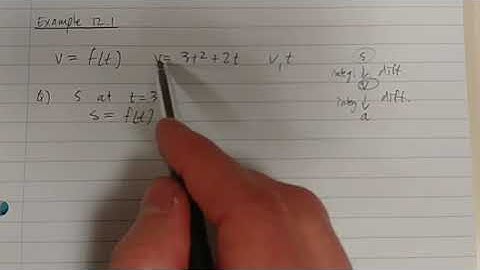 Example 12.1
v = f(t) v = 3t² + 2t v, t
a) s at t = 3
s = f(t)
s
integ. diff.
v
integ. diff.
a